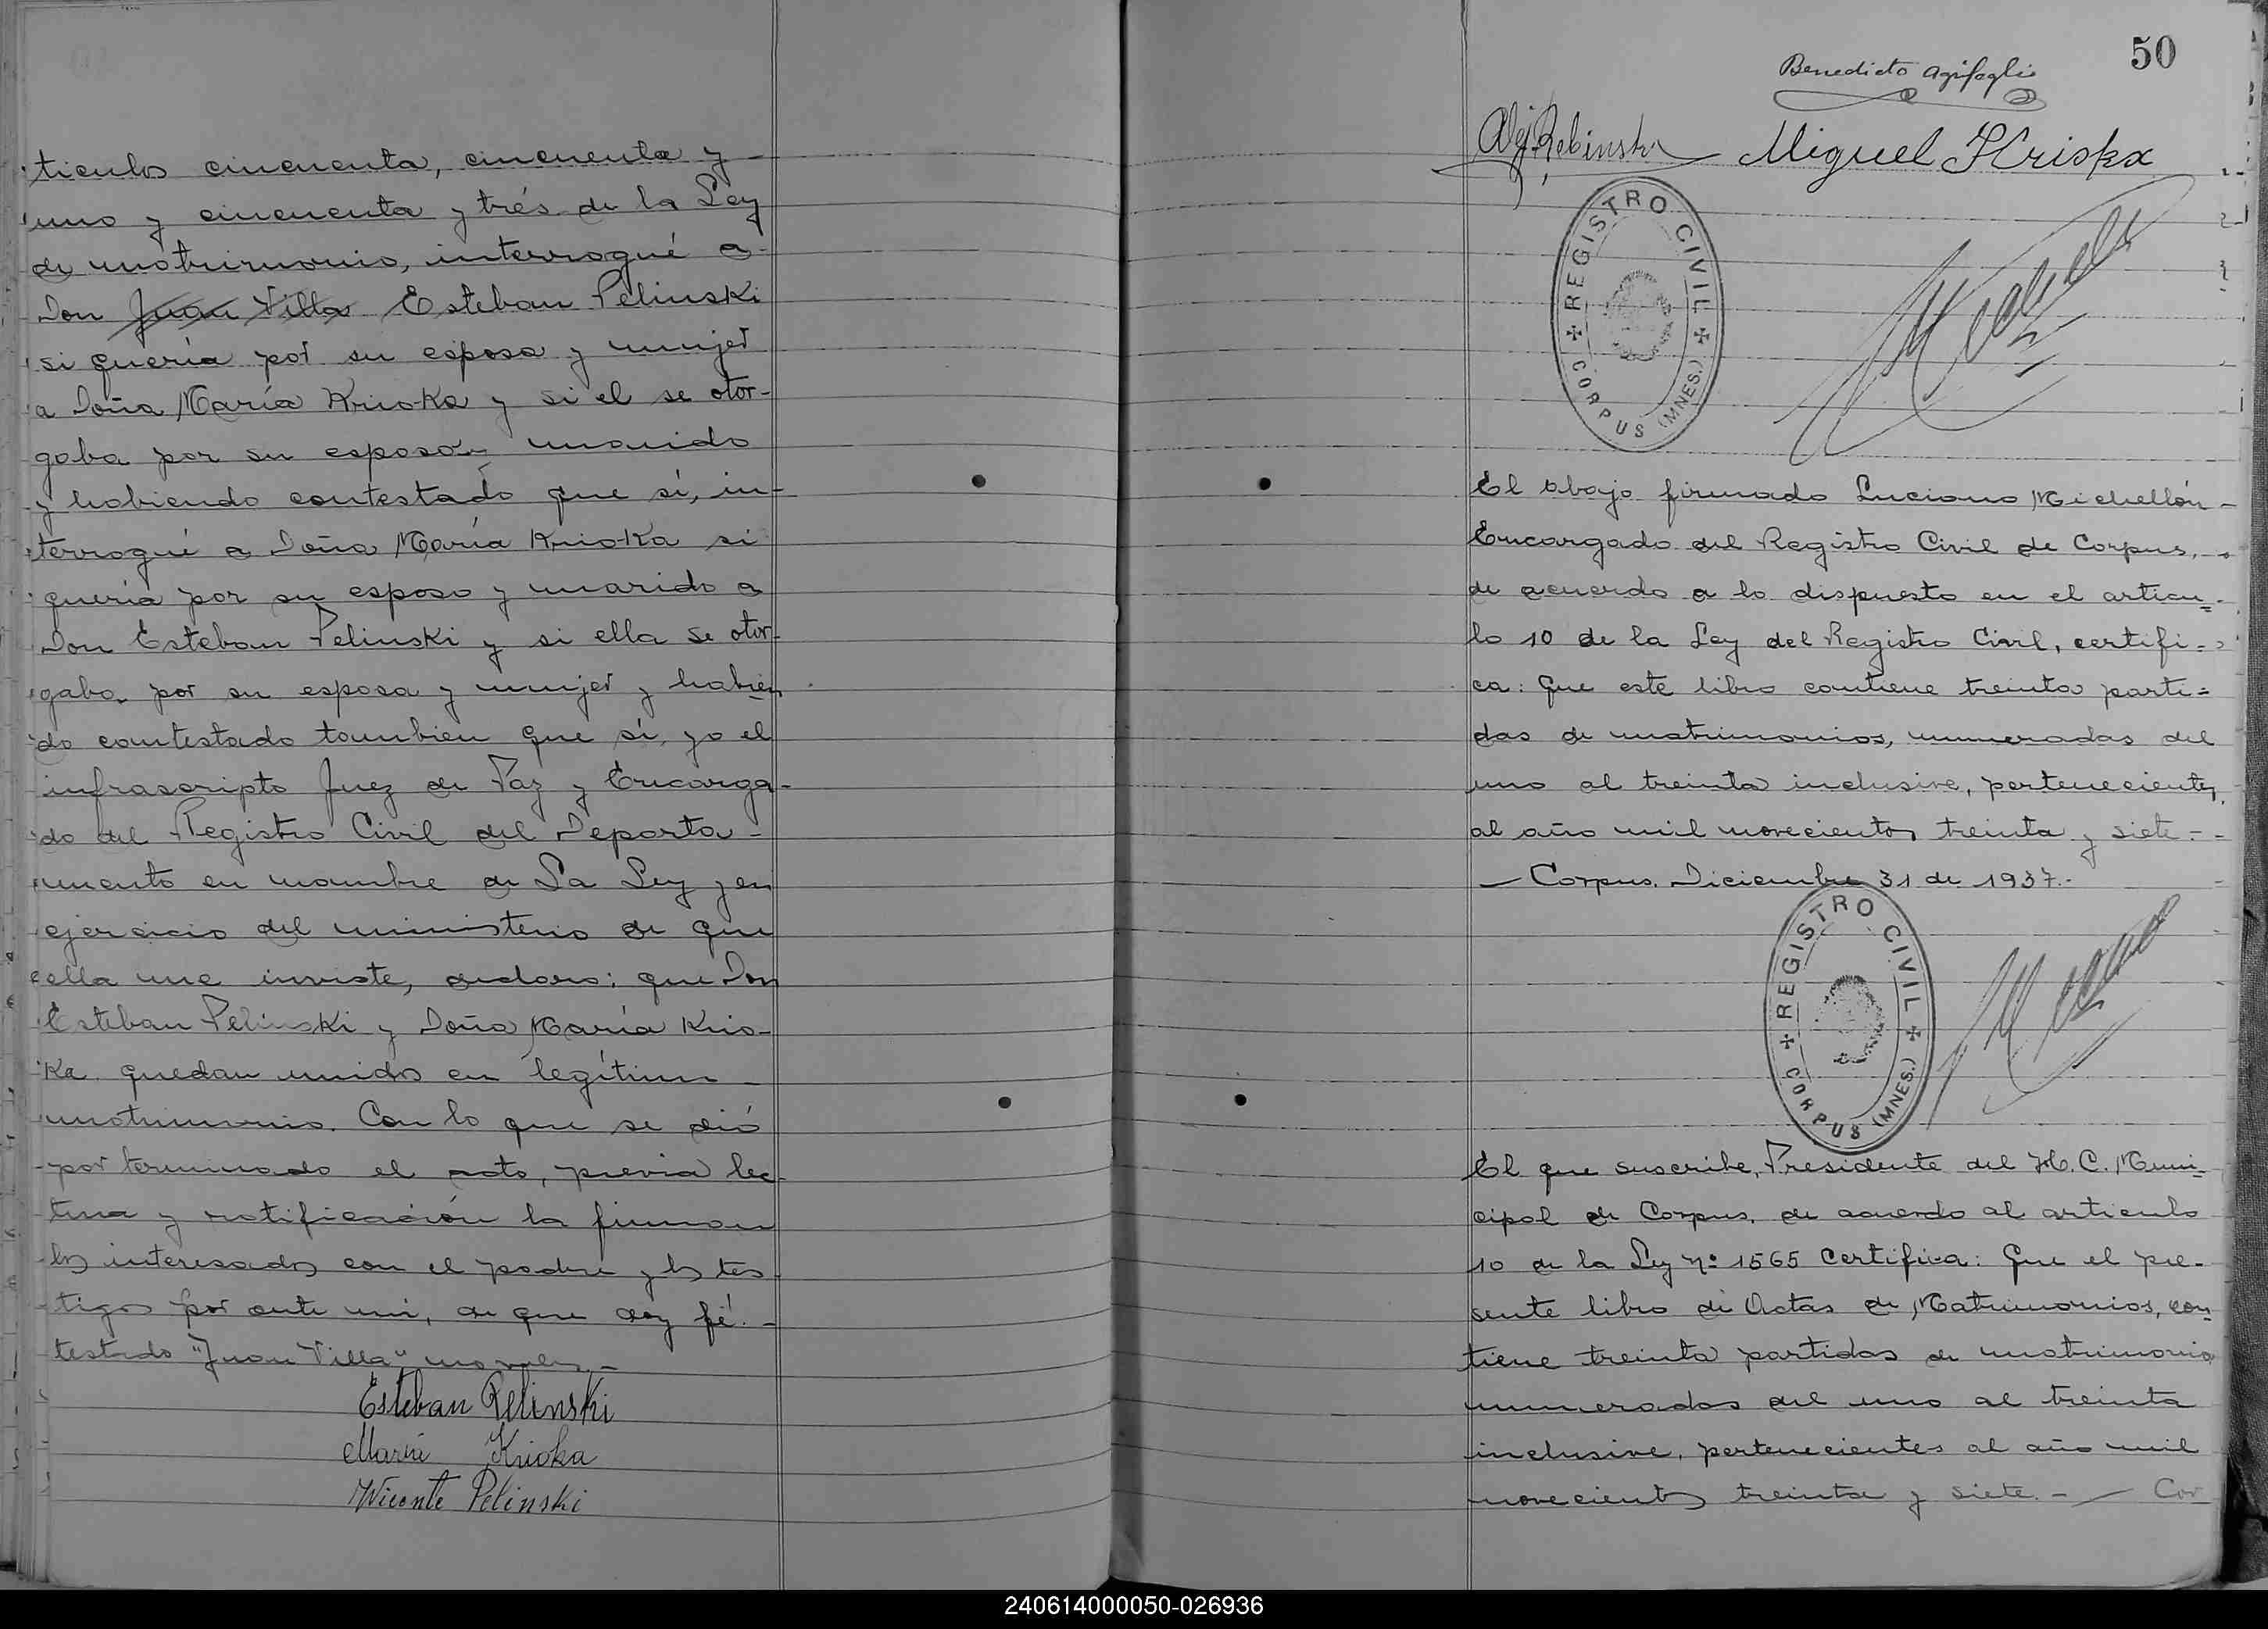 ticulos cincuenta, cincuenta y -
uno y cincuenta y trés de la Ley
de matrimonio, interrogué a -
Don Juan Villa Esteban Pelinski
si quería por su esposa y mujer
a Doña María Krioka y si el se otor-
gaba por su esposo y marido
y habiendo contestado que sí, in-
terrogué a Doña María Krioka si
quería por su esposo y marido a
Don Esteban Pelinski y si ella se otor-
gaba por su esposa y mujer y habien
do contestado tambien que sí, yo el
infrascripto Juez de Paz y Encarga-
do del Registro Civil del Departa-
mento en nombre de La Ley y en
ejercicio del ministerio de que
ella me inviste, declaro: que Don
Esteban Pelinski y Doña María Krio-
ka quedan unidos en legítimo -
matrimonio. Con lo que se dió
por terminado el acto, previa lec-
tura y ratificación la firman
los interesados con el padre y los tes-
tigos por ante mi, de que doy fé. -
testado "Juan Villa" no vale. -
Esteban Pelinski
María Krioka
Wicente Pelinski
50
Benedicto
Miguel Kriska
REGISTRO CIVIL
CORPUS (MNES.)
El abajo firmado Luciano Michellón -
Encargado del Registro Civil de Corpus, -
de acuerdo a lo dispuesto en el articu-
lo 10 de la Ley del Registro Civil, certifi-
ca: Que este libro contiene treinta parti-
das de matrimonios, numeradas del
uno al treinta inclusive, pertenecientes
al año mil novecientos treinta y siete. -
- Corpus, Diciembre 31 de 1937. -
REGISTRO CIVIL
CORPUS (MNES.)
El que suscribe, Presidente del H. C. Muni-
cipal de Corpus, de acuerdo al articulo
10 de la Ley nº 1565 Certifica: Que el pre-
sente libro de Actas de Matrimonios, con-
tiene treinta partidas de matrimonio
numeradas del uno al treinta
inclusive, pertenecientes al año mil
novecientos treinta y siete. - - Cor-
240614000050-026936